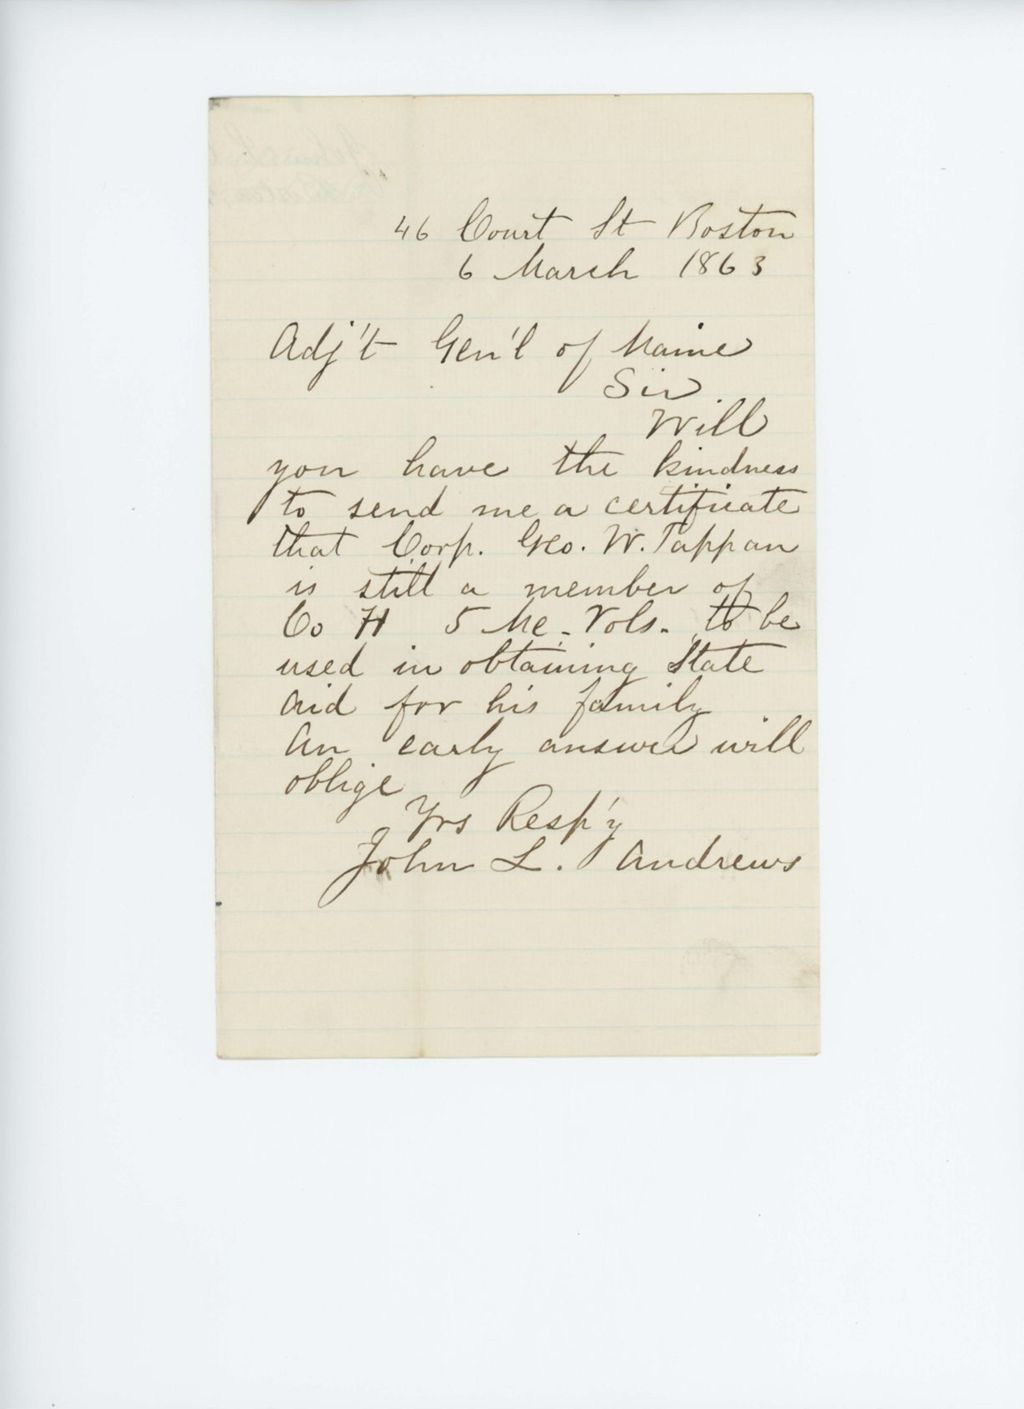 46 Court St Boston
6 March 1863
Adj't Gen'l of Maine
Sir
Will
you have the kindness
to send me a certificate
that Corp. Geo. W. Tappan
is still a member of
Co H 5 Me. Vols. to be
used in obtaining State
aid for his family
An early answer will
oblige
Yrs Resp'y
John L. Andrews